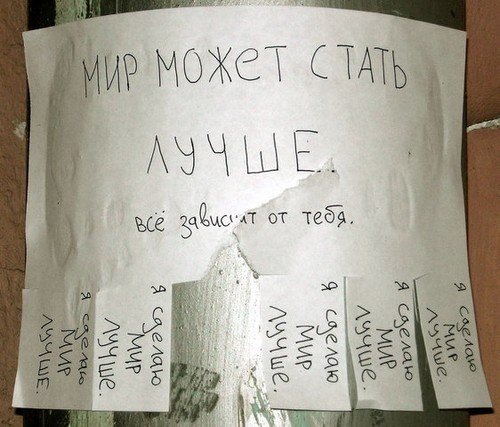 МИР МОЖЕТ СТАТЬ
ЛУЧШЕ.
всё зависит от тебя.
я сделаю
МИР
лучше.
я сделаю
МИР
лучше.
я сделаю
МИР
лучше.
я сделаю
МИР
лучше.
я сделаю
МИР
лучше.